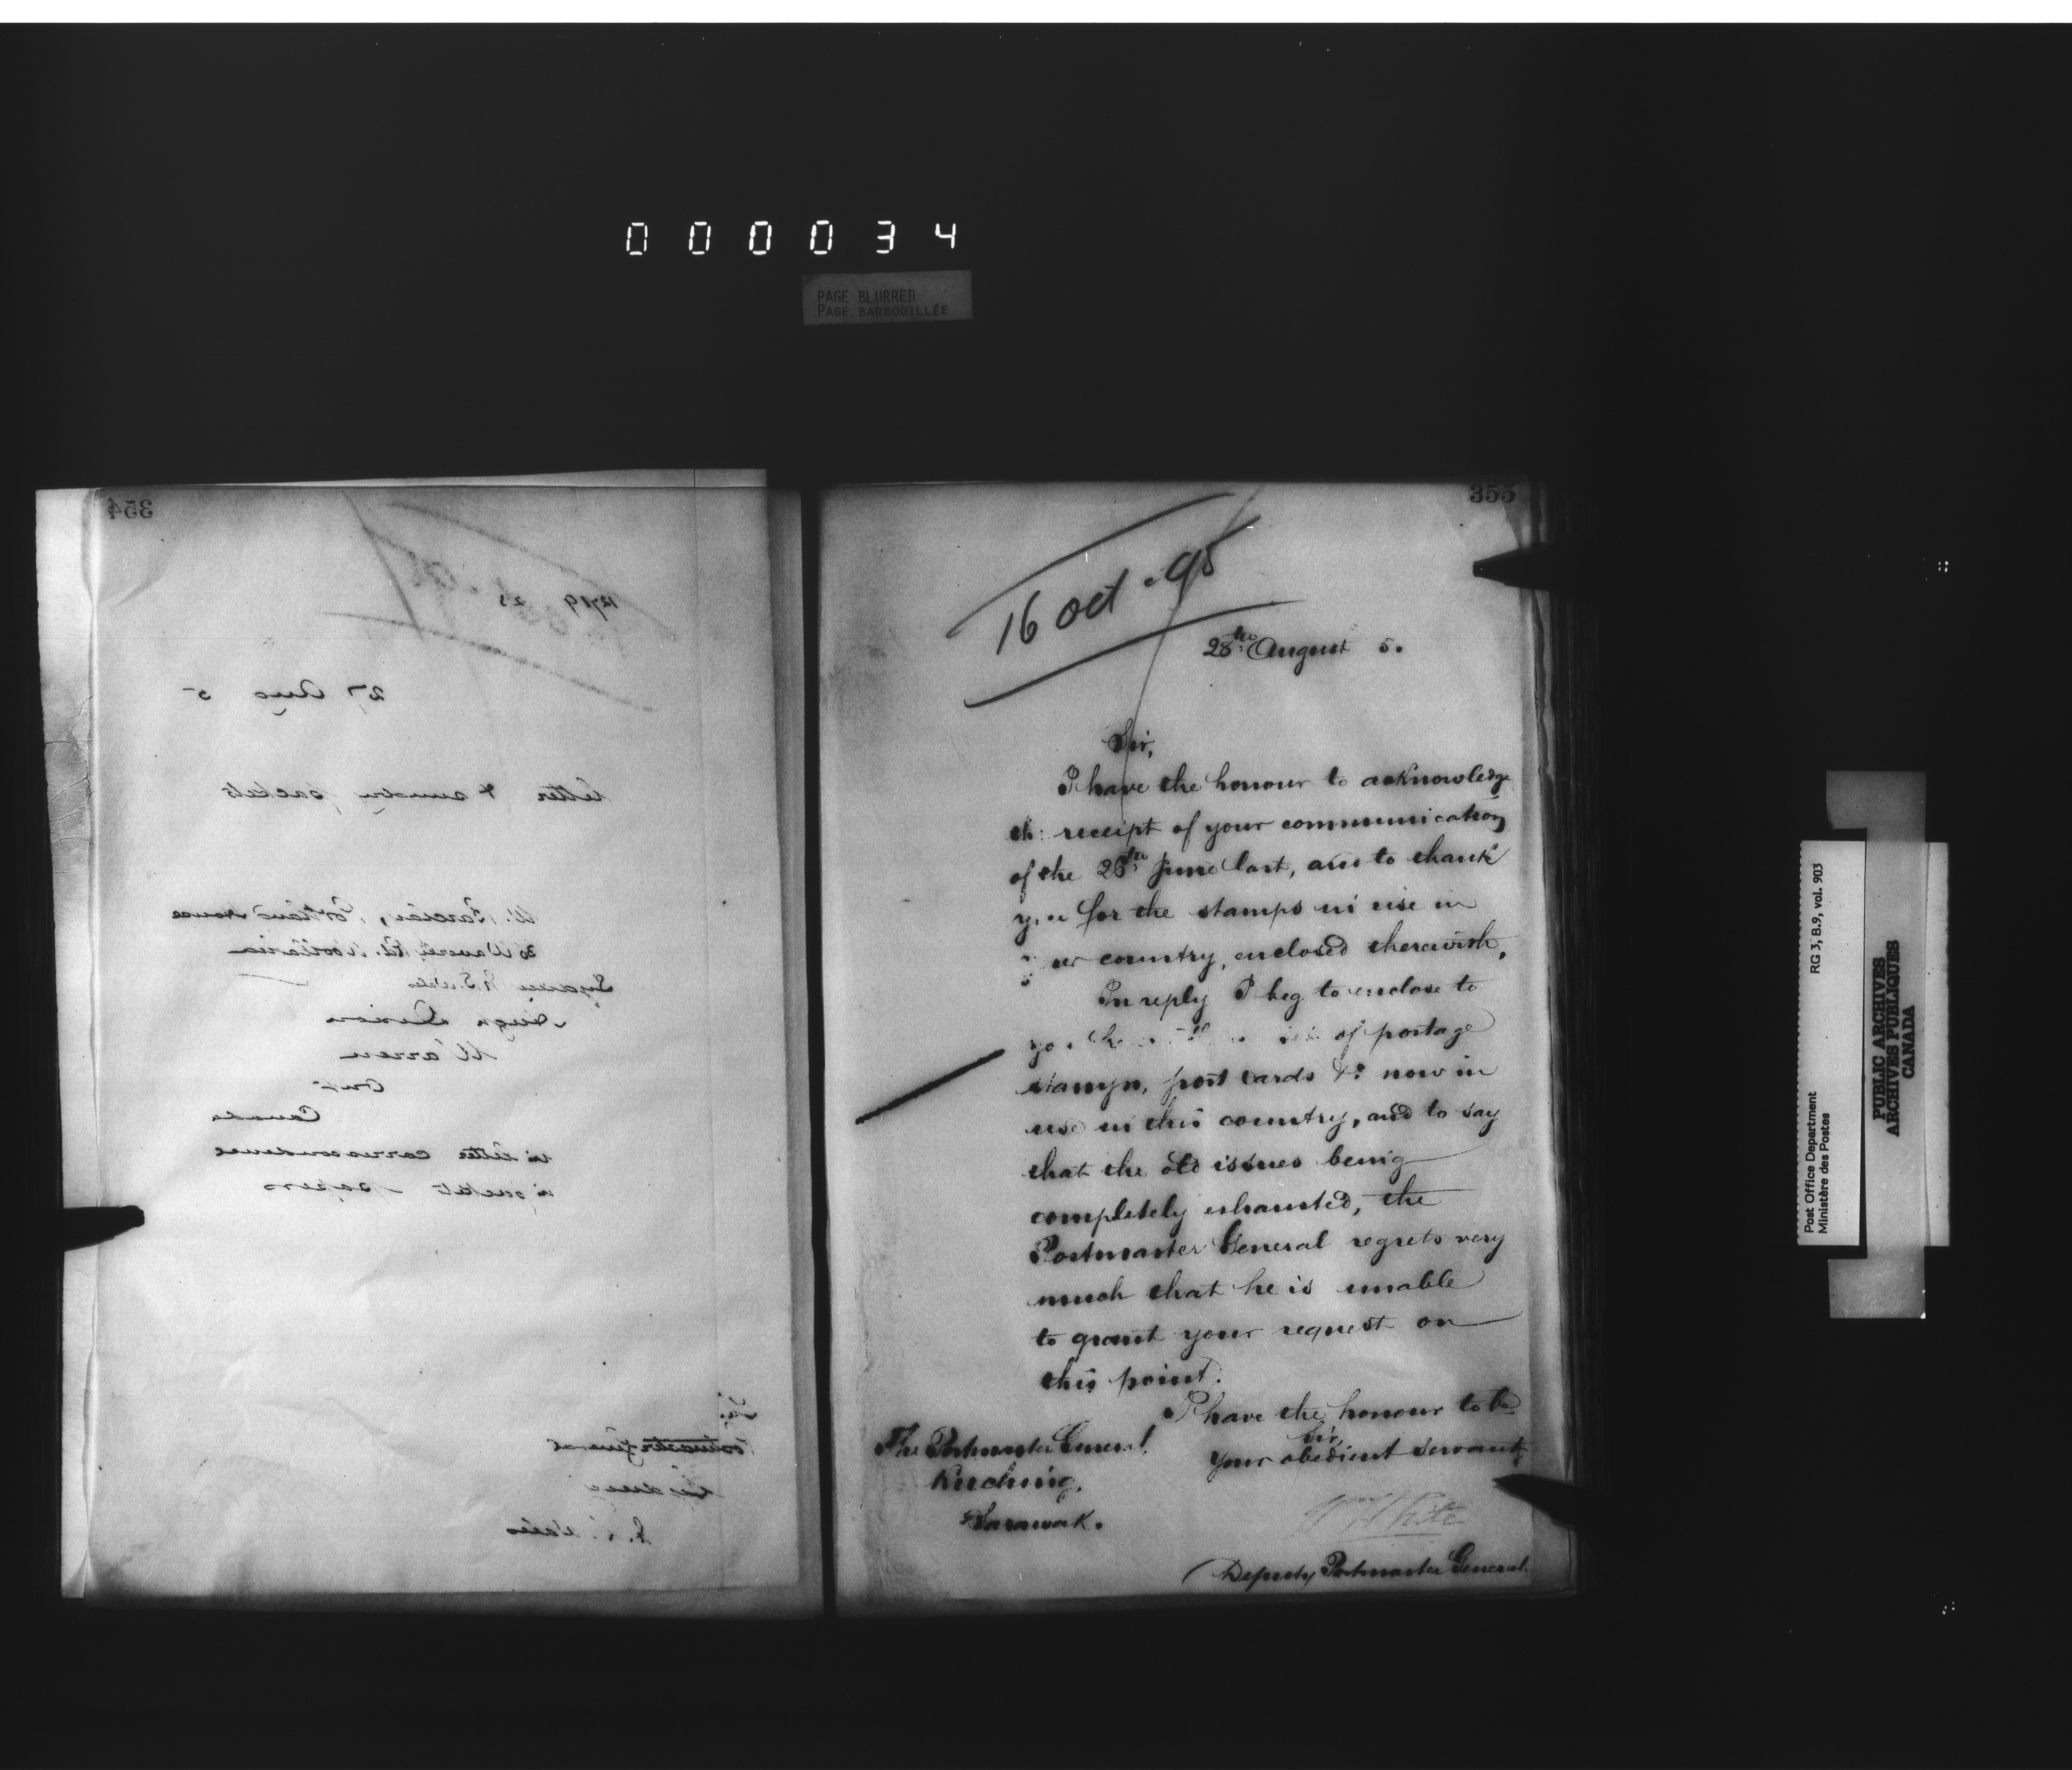 000034
PAGE BLURRED
PAGE BARBOUILLÉE
354
27 Aug 5
letter & sundry packets
20 Waverley Rd.
Warren
Ont
Canada
in letter correspondence
in packets papers
Postmaster General
Sydney
355
16 Oct. 95
28th August 5.
Sir,
I have the honour to acknowledge
the receipt of your communication
of the 26th June last, and to thank
you for the stamps in use in
your country, enclosed therewith.
In reply I beg to enclose to
you of postage
stamps, post cards &c now in
use in this country, and to say
that the old issues being
completely exhausted, the
Postmaster General regrets very
much that he is unable
to grant your request on
this point.
I have the honour to be
Sir,
Your obedient servant,
The Postmaster General,
Kuching,
Sarawak.
W White
Deputy Postmaster General.
Post Office Department RG 3, B.9, vol. 903
Ministère des Postes
PUBLIC ARCHIVES
ARCHIVES PUBLIQUES
CANADA